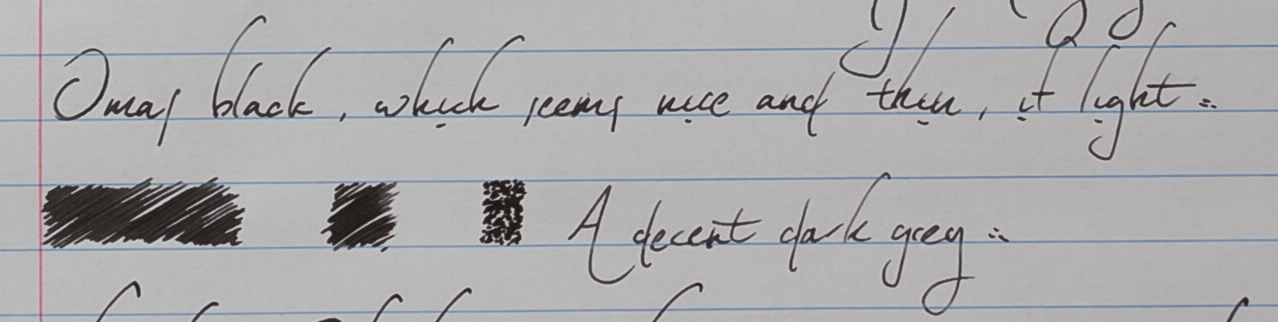 Omas black, which seems nice and thin, it light.
A decent dark grey.